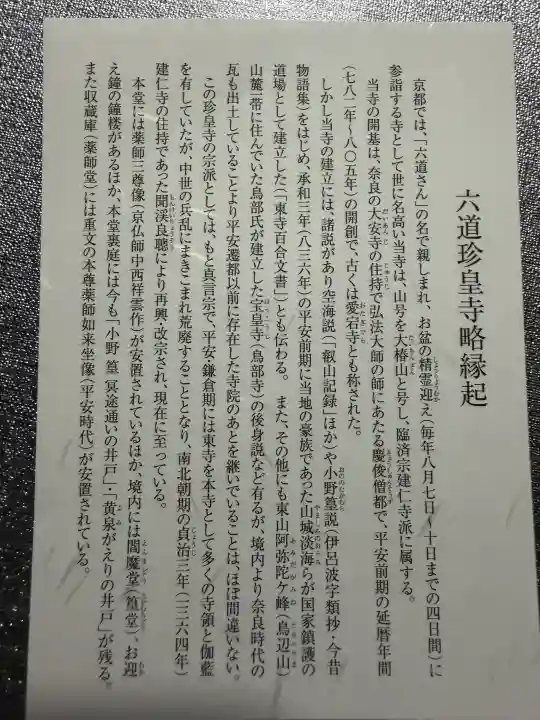 六道珍皇寺略縁起
京都では、「六道さん」の名で親しまれ、お盆の精霊迎え(毎年八月七日~十日までの四日間)に
参詣する寺として世に名高い当寺は、山号を大椿山と号し、臨済宗建仁寺派に属する。
当寺の開基は、奈良の大安寺の住持で弘法大師の師にあたる慶俊僧都で、平安前期の延暦年間
(七八二年~八〇五年)の開創で、古くは愛宕寺とも称された。
しかし当寺の建立には、諸説があり空海説(「叡山記録」ほか)や小野篁説(伊呂波字類抄・今昔
物語集)をはじめ、承和三年(八三六年)の平安前期に当地の豪族であった山城淡海らが国家鎮護の
道場として建立した(「東寺百合文書」)とも伝わる。 また、その他にも東山阿弥陀ケ峰(鳥辺山)
山麓一帯に住んでいた鳥部氏が建立した宝皇寺(鳥部寺)の後身説など有るが、境内より奈良時代の
瓦も出土していることより平安遷都以前に存在した寺院のあとを継いでいることは、ほぼ間違いない。
この珍皇寺の宗派としては、もと真言宗で、平安・鎌倉期には東寺を本寺として多くの寺領と伽藍
を有していたが、中世の兵乱にまきこまれ荒廃することとなり、南北朝期の貞治三年(一三六四年)
建仁寺の住持であった聞渓良聰により再興・改宗され、現在に至っている。
本堂には薬師三尊像(京仏師中西祥雲作)が安置されているほか、境内には閻魔堂(篁堂)、お迎
え鐘の鐘楼があるほか、本堂裏庭には今も「小野篁冥途通いの井戸」・「黄泉がえりの井戸」が残る。
また収蔵庫(薬師堂)には重文の本尊薬師如来坐像(平安時代)が安置されている。